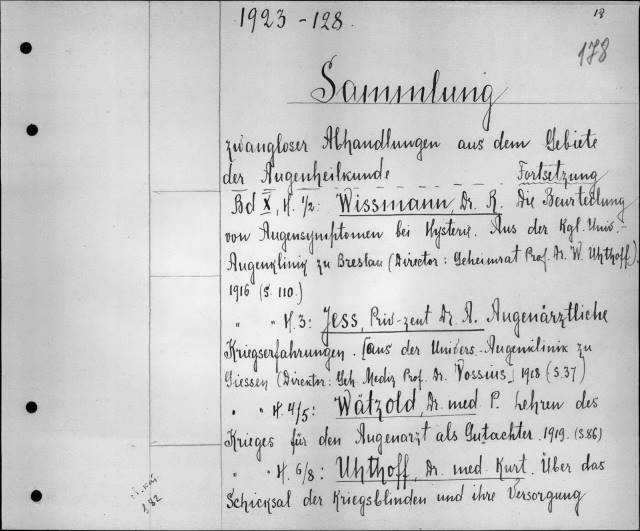 1923-128.
178
Sammlung
zwangloser Abhandlungen aus dem Gebiete
der Augenheilkunde Fortsetzung
Bd X, H. 1/2: Wissmann, Dr. R. Die Beurteilung
von Augensymptomen bei Hysterie. Aus der Kgl. Univ.-
Augenklinik zu Breslau (Director: Geheimrat Prof. Dr. W. Uhthoff).
1916 (S. 110.)
" " H. 3: Jess, Priv-zent Dr. A. Augenärztliche
Kriegserfahrungen. [aus der Univers.-Augenklinik zu
Giessen (Direktor: Geh. Mediz Prof. Dr. Vossius] 1918 (S. 37)
" " H. 4/5: Wätzold, Dr. med P. Lehren des
Krieges für den Augenarzt als Gutachter. 1919. (S. 86)
" " H. 6/8: Uhthoff, Dr. med. Kurt. Über das
Schicksal der Kriegsblinden und ihre Versorgung